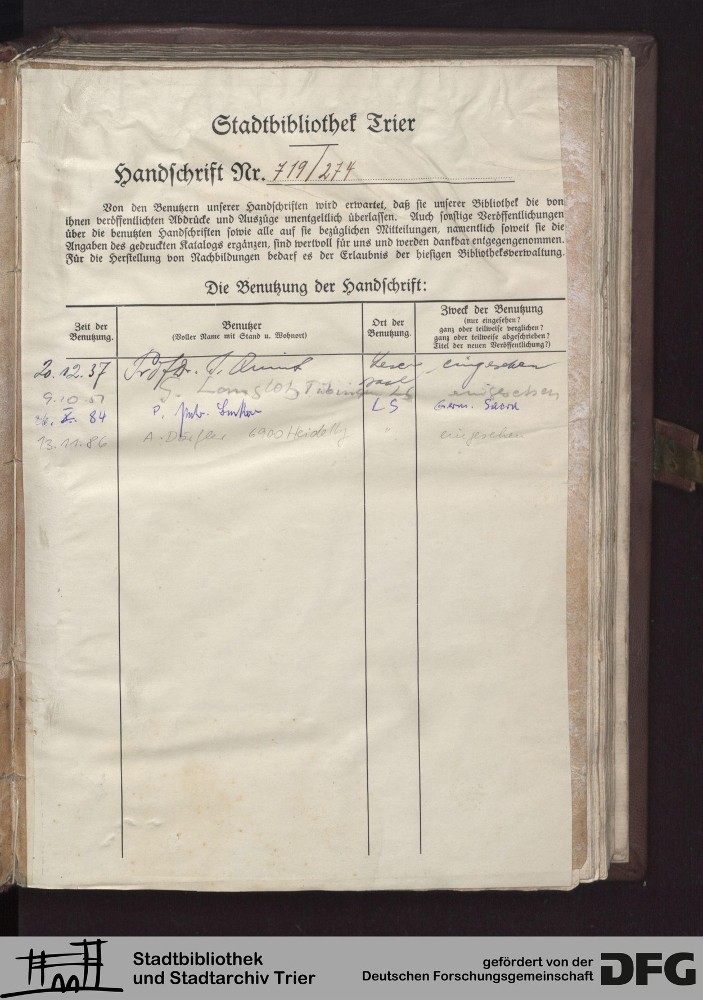 Stadtbibliothek Trier
Handschrift Nr. 719/274
Von den Benutzern unserer Handschriften wird erwartet, daß sie unserer Bibliothek die von
ihnen veröffentlichten Abdrücke und Auszüge unentgeltlich überlassen. Auch sonstige Veröffentlichungen
über die benutzten Handschriften sowie alle auf sie bezüglichen Mitteilungen, namentlich soweit sie die
Angaben des gedruckten Katalogs ergänzen, sind wertvoll für uns und werden dankbar entgegengenommen.
Für die Herstellung von Nachbildungen bedarf es der Erlaubnis der hiesigen Bibliotheksverwaltung.
Die Benutzung der Handschrift:
Zeit der
Benutzung.
Benutzer
(Voller Name mit Stand u. Wohnort)
Ort der
Benutzung.
Zweck der Benutzung
(nur eingesehen?
ganz oder teilweise verglichen?
ganz oder teilweise abgeschrieben?
Titel der neuen Veröffentlichung?)
20.12.37 Prof. Dr. Lese eingesehen
saal
9.10. Tübingen LS eingesehen
X. 84 P. LS Germ. Sacra
13.11.86 A. Dörfler 6900 Heidelbg " eingesehen
Stadtbibliothek
und Stadtarchiv Trier
gefördert von der
Deutschen Forschungsgemeinschaft
DFG